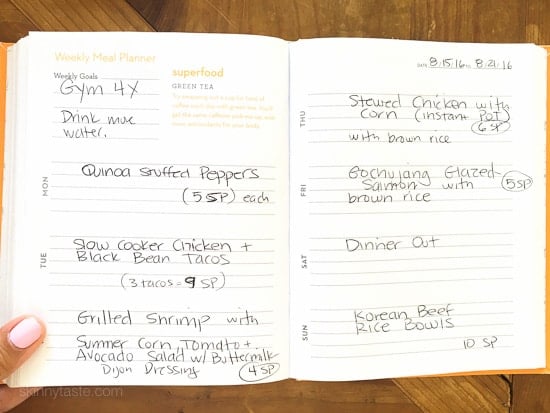 Weekly Meal Planner
Weekly Goals
Gym 4X
Drink more
water.
superfood
GREEN TEA
MON
Quinoa Stuffed Peppers
(5 SP) each
TUE
Slow Cooker Chicken +
Black Bean Tacos
(3 tacos = 9 SP)
Grilled Shrimp with
Summer Corn, Tomato +
Avocado Salad w/ Buttermilk
Dijon Dressing
4 SP
DATE 8.15.16 TO 8.21.16
THU
Stewed Chicken with
Corn (instant Pot)
6 SP
with brown rice
FRI
Gochujang Glazed
Salmon with
brown rice
5 SP
SAT
Dinner Out
SUN
Korean Beef
Rice Bowls
10 SP
skinnytaste.com